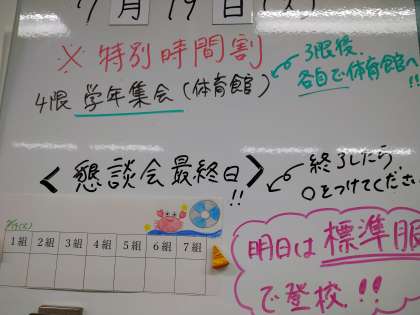 7月19日(
※特別時間割
4限 学年集会(体育館)
3限後、
各自で体育館へ!!
<懇談会最終日!!>
終了したら
○をつけてくださ
7/19(
1組 2組 3組 4組 5組 6組 7組
明日は標準服
で登校!!